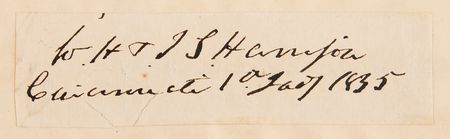 W. H & J S. Harrison
Cincinnati 1o. Jany 1835